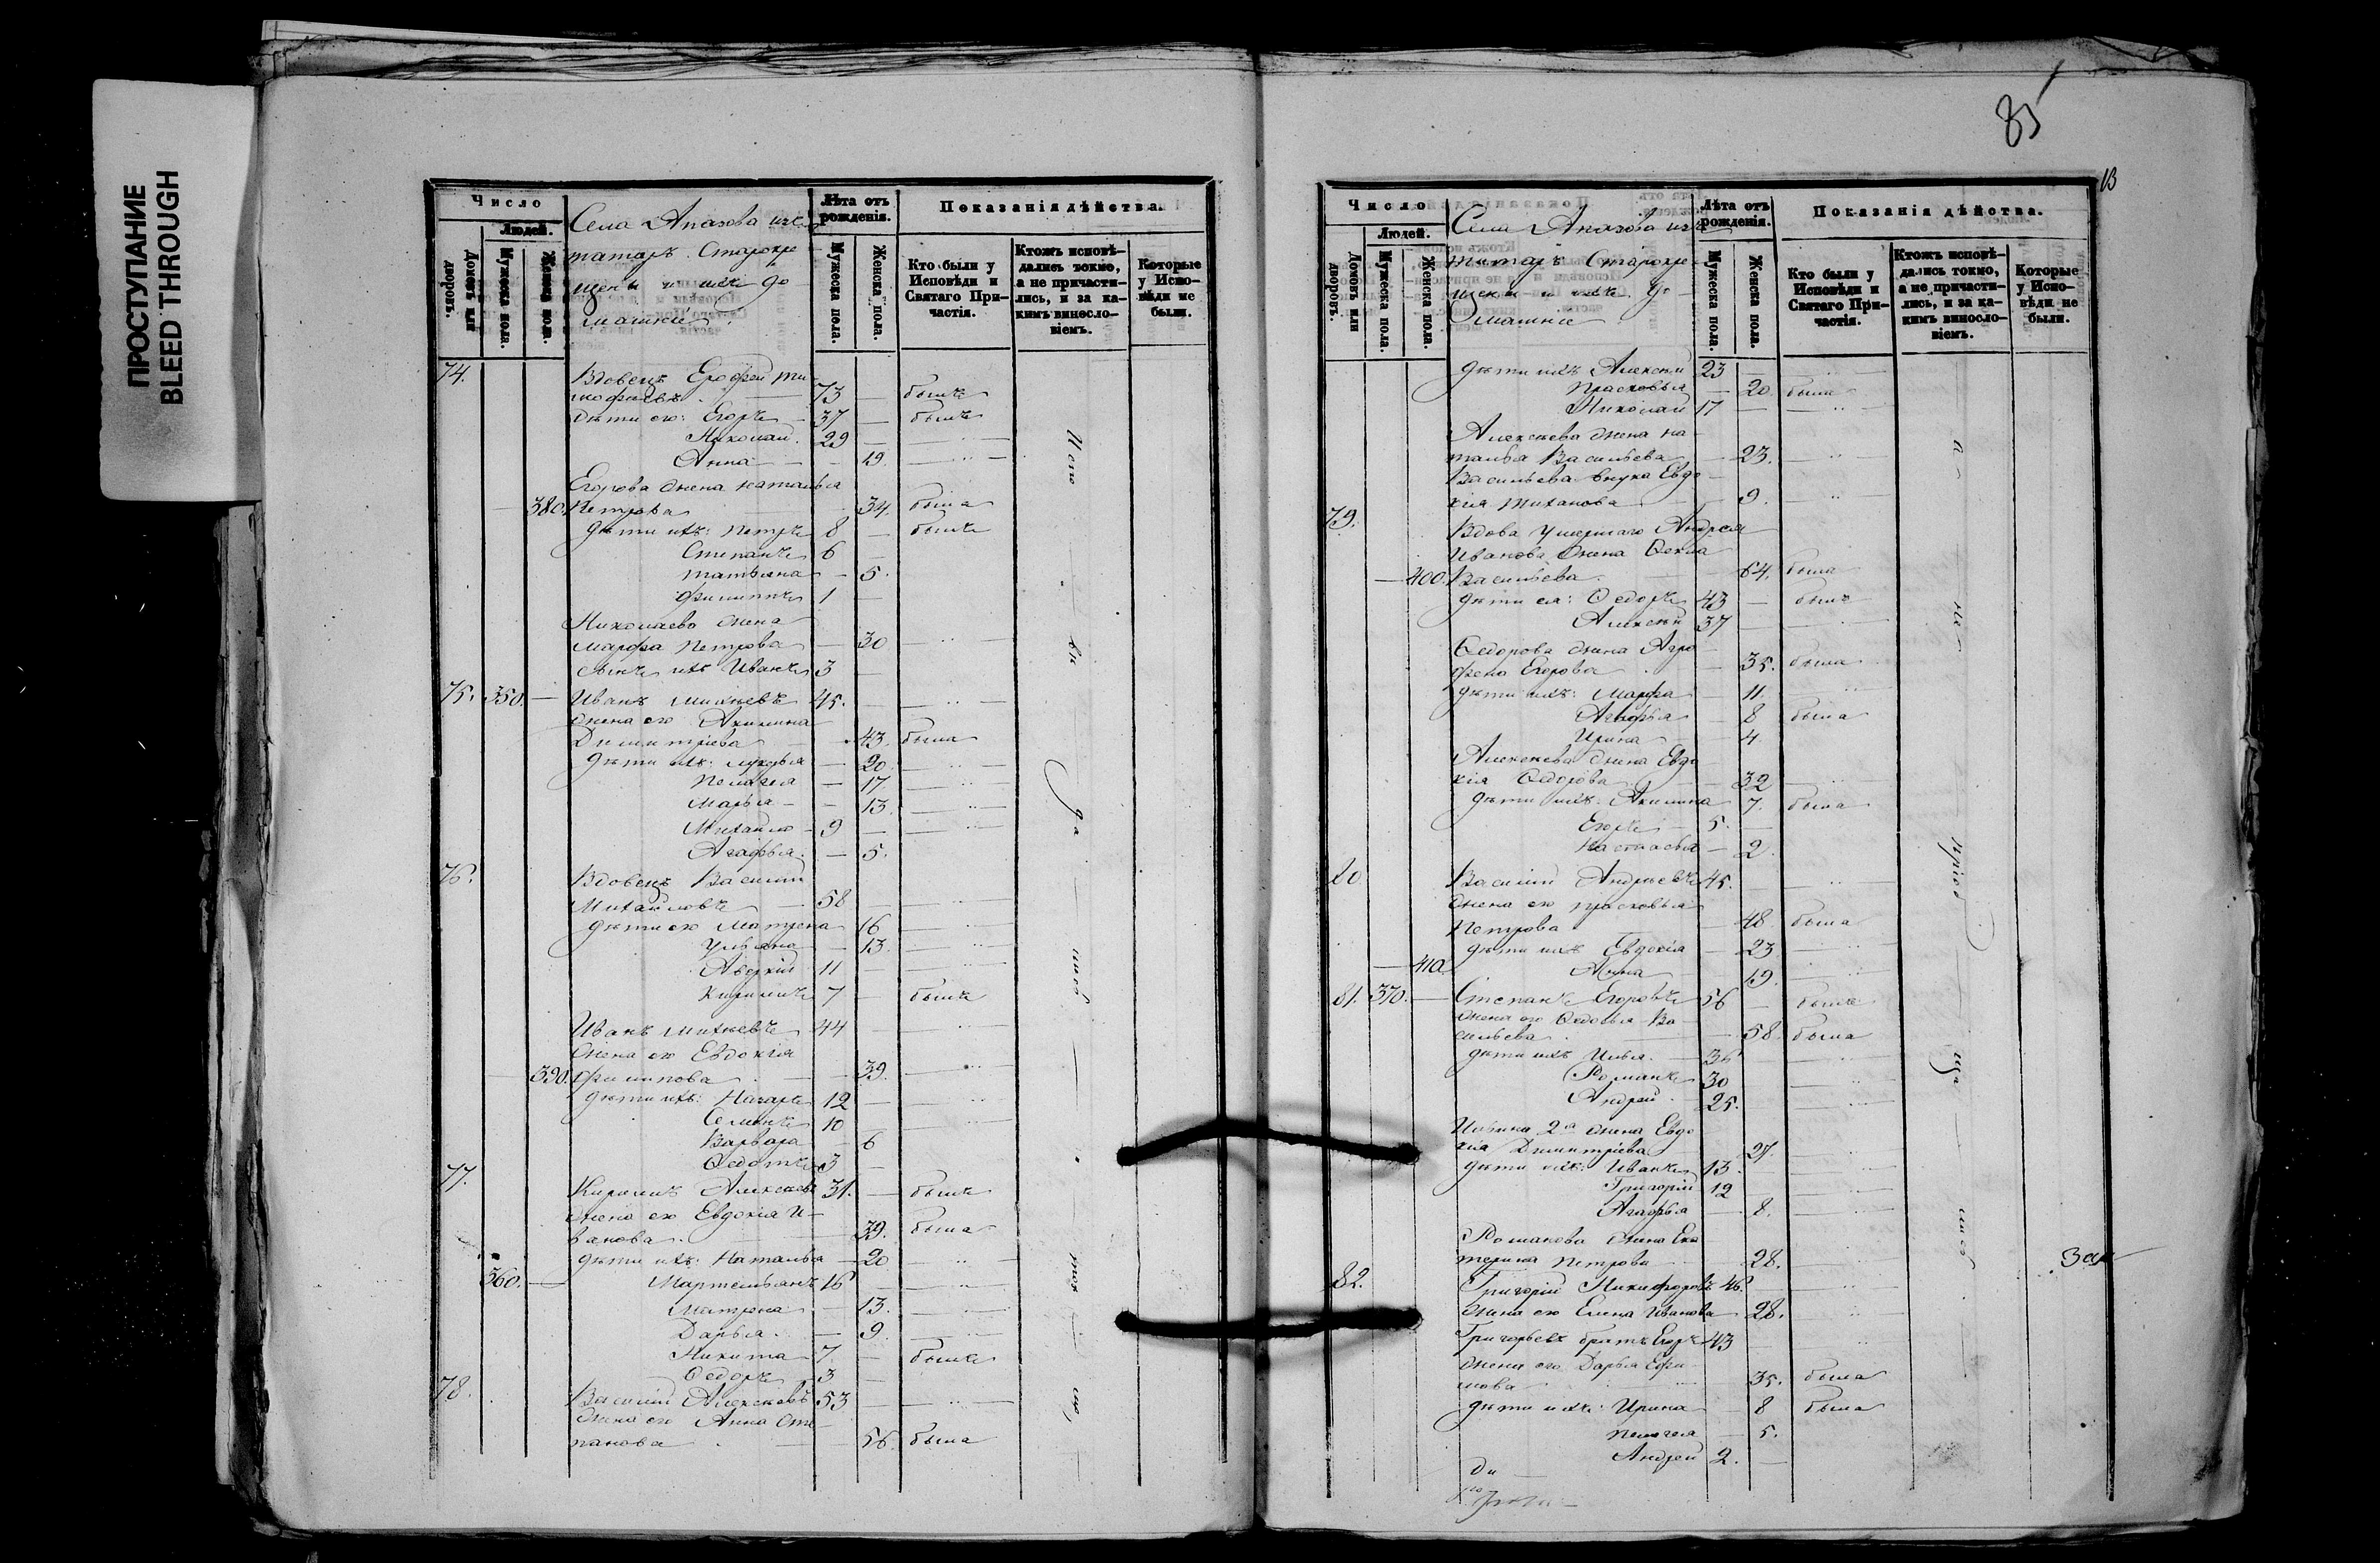 ПРОСТУПАНИЕ
BLEED THROUGH
Число
Людей.
Домовъ или дворовъ.
Мужеска пола.
Женска пола.
Села Апазова изъ
татаръ Старокре
щены и ихъ до
машніе
Лѣта отъ рожденія.
Мужеска пола.
Женска пола.
Показанія дѣйства.
Кто были у Исповѣди и Святаго При-частія.
Ктожъ исповѣ-дались токмо, а не причасти-лись, и за ка-кимъ винсло-віемъ.
Которые у Испо-вѣди не были.
74. Вдовецъ Ерофей Ти
мофѣевъ 73 — былъ
Дѣти его: Егоръ 37 — былъ
Николай 29 —
Анна — 19.
Егорова жена Наталья
380. Петрова 34. была
дѣти ихъ: Петръ 8 — былъ
Степанъ 6 —
Татьяна — 5.
Филиппъ 1 —
Николаева жена
Марфа Петрова — 30
сынъ ихъ Иванъ 3
75. 350. — Иванъ Михѣевъ 45.
жена его Акилина
Димитріева 43. была
дѣти ихъ: Лукерья — 20.
Пелагея — 17
Марья — 13.
Михаилъ 9 —
Агафья — 5.
76. Вдовецъ Василій
Михайловъ — 58
дѣти его Матрена 16
Ульяна — 13.
Аверкій 11 —
Кирилъ 7 — былъ
Иванъ Михѣевъ 44
Жена его Евдокія
390. Филипова — 39.
дѣти ихъ: Назаръ 12
Семенъ 10
Варвара — 6
Ѳедотъ 3 —
77. Кирилъ Алексѣевъ 31. — былъ
жена его Евдокія И-
ванова 39. была
дѣти ихъ: Наталья — 20
360. — Мартемьянъ 16
Матрена — 13.
Дарья — 9.
Никита 7 — былъ
Ѳедоръ 3 —
78. Василій Алексѣевъ 53
жена его Анна Сте
панова 56. была
85
Число
Людей.
Домовъ или дворовъ.
Мужеска пола.
Женска пола.
Села Апазова изъ
татаръ Старокре-
щены и ихъ до
машніе
Лѣта отъ рожденія.
Мужеска пола.
Женска пола.
Показанія дѣйства.
Кто были у Исповѣди и Святаго При-частія.
Ктожъ исповѣ-дались токмо, а не причасти-лись, и за ка-кимъ винсло-віемъ.
Которые у Испо-вѣди не были.
дѣти ихъ Алексѣй 23
Прасковья — 20. была
Николай 17 —
Алексѣева жена На
талья Васильева — 23.
Васильева внука Евдо
кія 9.
79. Вдова умершаго Андрея
Иванова жена Ѳекла
— 400. Васильева 64. была
дѣти ея: Ѳедоръ 43 — былъ
Алексѣй 37
Ѳедорова жена Агро
фена Егорова — 35. была
дѣти ихъ: Марфа — 11.
Агафья — 8 была
Ирина — 4.
Алексѣева жена Евдо
кія Ѳедорова 32
дѣти ихъ: Акилина 7. была
Егоръ 5. —
Настасья — 2.
80 Василій Андреевъ 45.
жена его Прасковья
Петрова — 48 была
дѣти ихъ Евдокія — 23
— 410. Анна 19.
81. 370. — Степанъ Егоровъ 56 — былъ
жена его Ѳедосья Ва
сильева 58. была
дѣти ихъ Илья
Романъ 30
Андрей 25.
Ильина 2я жена Евдо
кія Димитріева 27.
дѣти ихъ: Иванъ 13.
Григорій 12
Агафья — 8.
Романова жена Ека
терина Петрова 28.
82. Григорій Никифоровъ 46.
жена его Елена Иванова 28.
Григорьевъ братъ Егоръ 43
жена его Дарья Ефи
мова 35. была
дѣти ихъ: Ирина — 8 была
Пелагея — 5.
Андрей 2. —